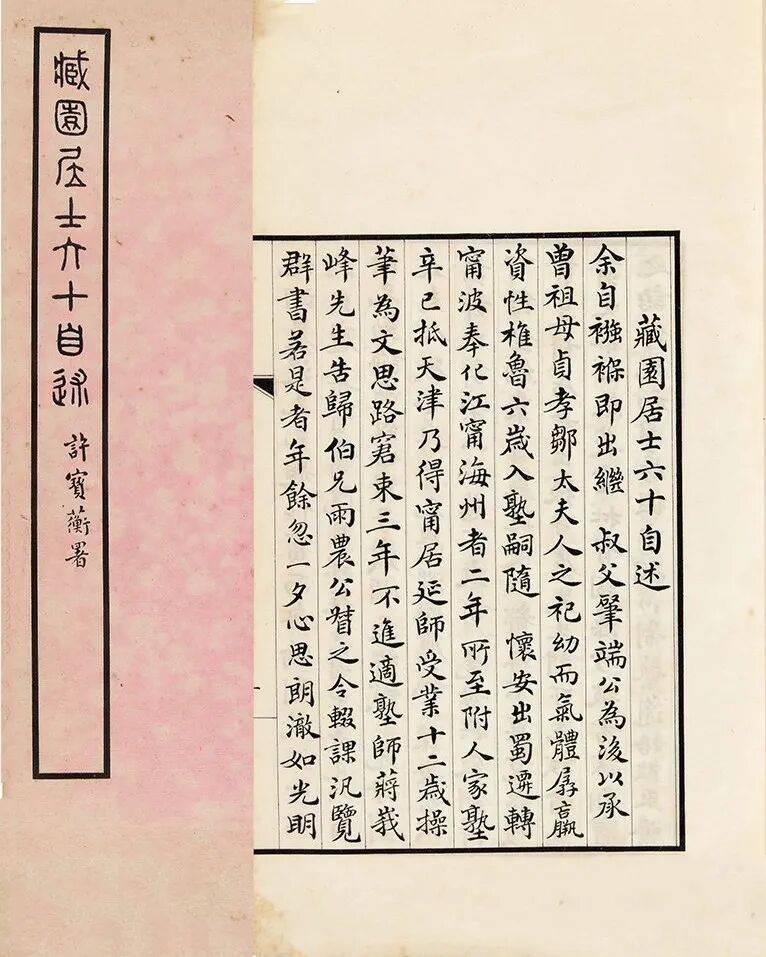 藏園居士六十自述
許寶蘅署
藏園居士六十自述
余自襁褓即出繼 叔父肇端公為後以承
曾祖母貞孝鄒太夫人之祀幼而氣體孱羸
資性椎魯六歲入塾嗣隨 懷安出蜀遷轉
甯波奉化江甯海州者二年所至附人家塾
辛巳抵天津乃得甯居延師受業十二歲操
筆為文思路窘束三年不進適塾師蔣莪
峰先生告歸伯兄雨農公督之令輟課汎覽
群書若是者年餘忽一夕心思朗澈如光明